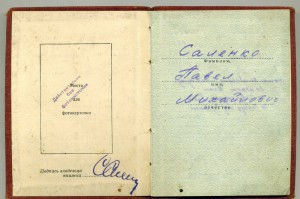 Место
для
фотокарточки
Действительно
без
фотокарточки
Подпись владельца
книжки
Саленко
Фамилия
Павел
имя
Михайлович
отчество